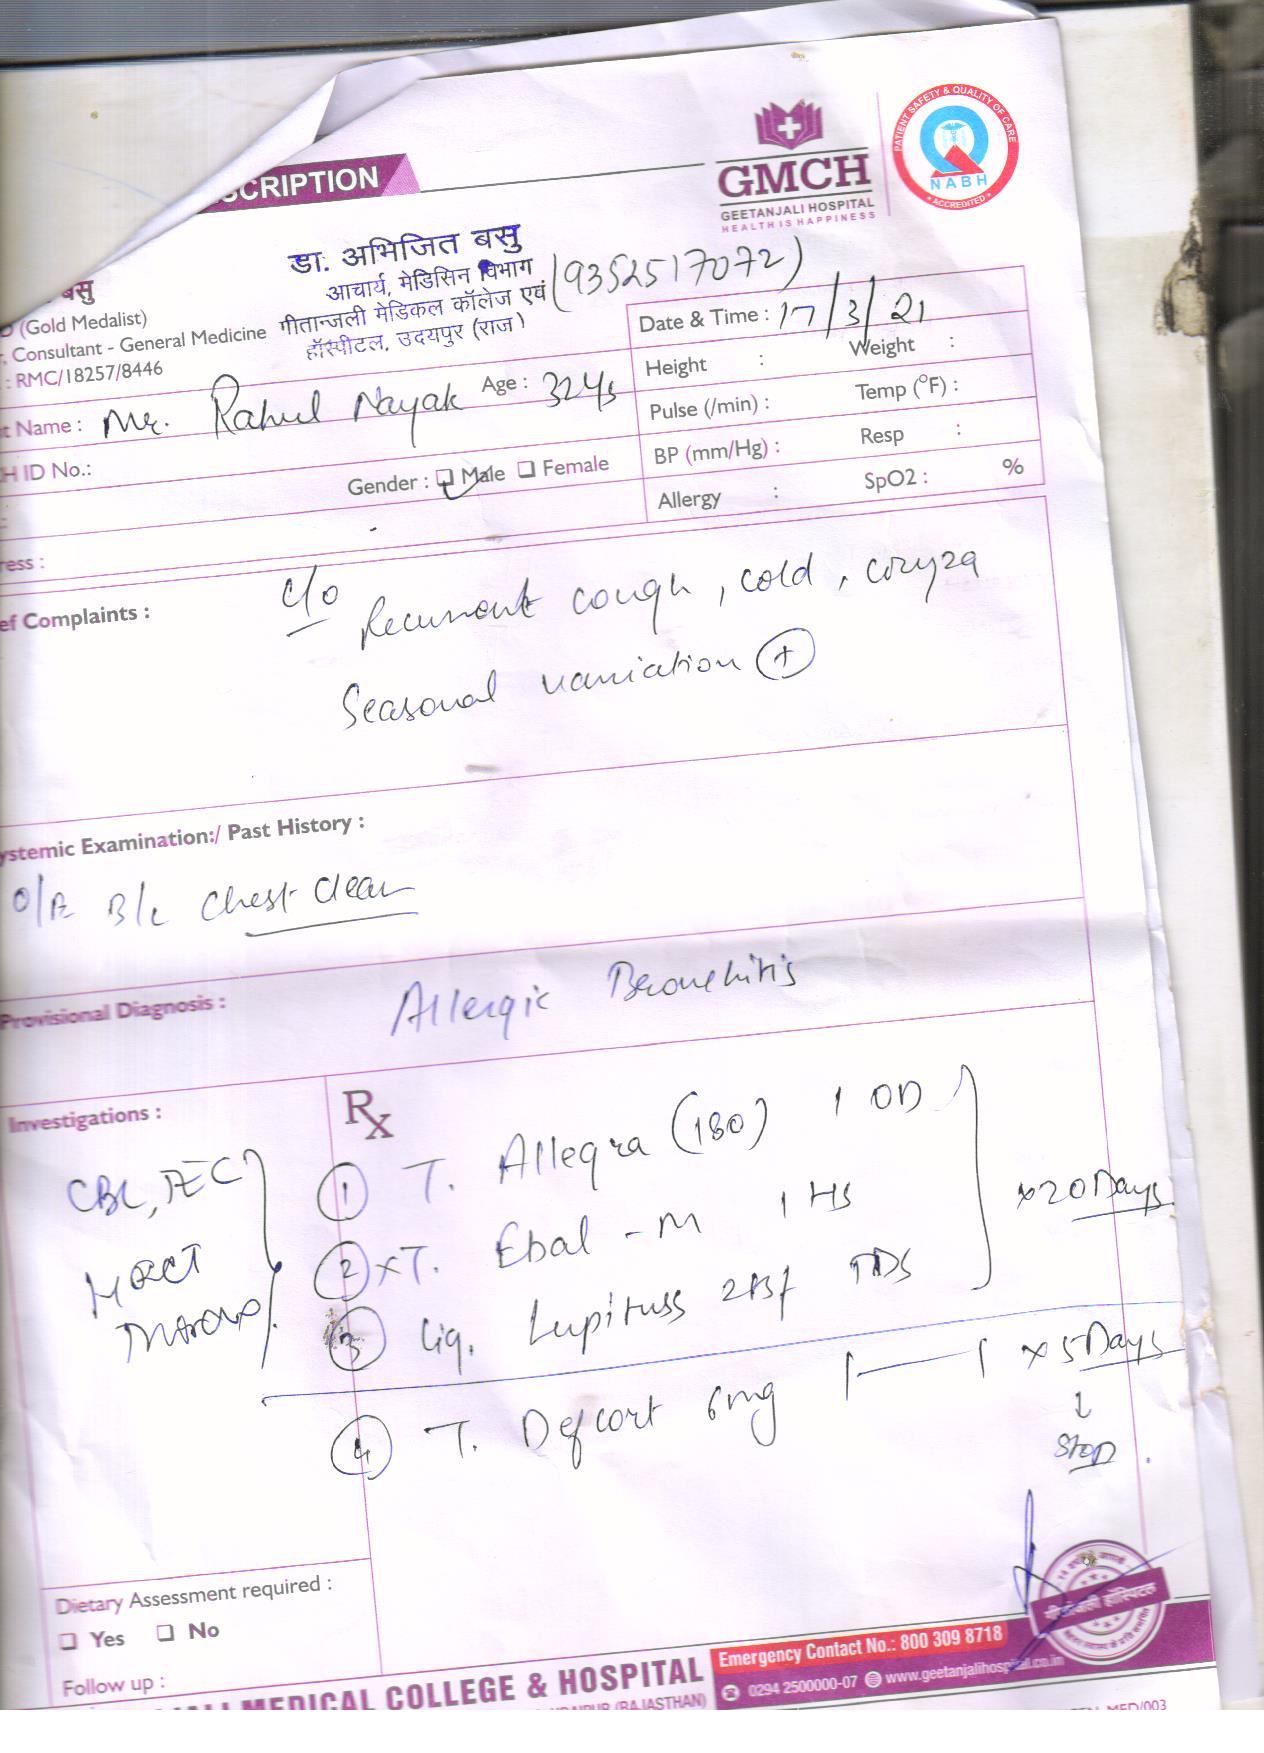 SCRIPTION
GMCH
GEETANJALI HOSPITAL
HEALTH IS HAPPINESS
PATIENT SAFETY & QUALITY OF CARE
NABH
ACCREDITED
डा. अभिजित बसु
आचार्य, मेडिसिन विभाग
गीतान्जली मेडिकल कॉलेज एवं
हॉस्पीटल, उदयपुर (राज)
(9352517072)
बसु
(Gold Medalist)
. Consultant - General Medicine
: RMC/18257/8446
Date & Time : 17/3/21
Height : Weight :
Pulse (/min) : Temp (°F) :
BP (mm/Hg) : Resp :
Allergy : SpO2 : %
t Name : Mr. Rahul Nayak Age : 32 Ys
H ID No.:
Gender : Male Female
ress :
ef Complaints : c/o Recurrent cough, cold, coryza
Seasonal variation +
ystemic Examination:/ Past History :
O/E B/L Chest clear
Provisional Diagnosis : Allergic Bronchitis
Investigations :
CBC, AEC
HRCT
Thorax
Rx
1 T. Allegra (180) 1 OD
2 xT. Ebal-M 1 HS x 20 Days
3 Liq. Lupituss 2tsf TDS
4 T. Defcort 6mg 1—1 x 5 Days
↓
Stop
Dietary Assessment required :
Yes No
Follow up :
गीतांजली हॉस्पिटल
Emergency Contact No.: 800 309 8718
0294 2500000-07 www.geetanjalihospital.co.in
JALI MEDICAL COLLEGE & HOSPITAL
(RAJASTHAN)
MED/003